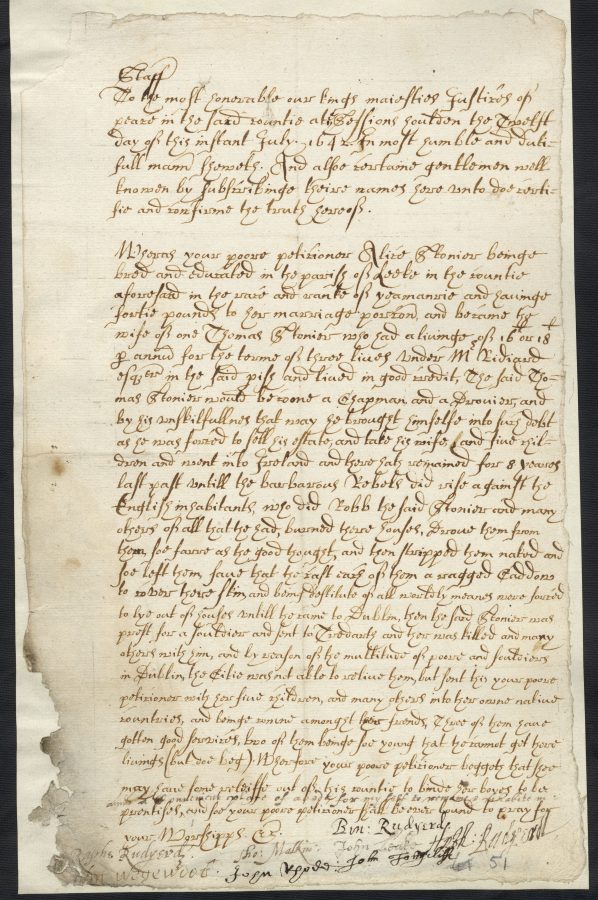 Staff
To the most honorable our kings maiesties Justices of
peace in the said countie att Sessions houlden the Twelft
day of this instant July. 1642. In most humble and duti=
full mann sheweth. And alsoe certaine gentlemen well
knowen by subscribinge theire names here unto doe certi=
fie and confirme the truth hereof.
Wheras your poore petitioner Alice Stonier beinge
bred and educated in the parish of Leeke in the countie
aforesaid in the race and ranke of yeamanrie and havinge
fortie pounds to her marriage porcon, and became the
wife of one Thomas Stonier who had a livinge of 16 or 18
p annu for the terme of three lives under Mr Rudiard
esqer in the said pish and lived in good credit, The said Tho=
mas Stonier would become a Chapman and a Drovier, and
by his unskilfullnes that way he brought himselfe into such debt
as he was forced to sell his estate, and take his wife, and five chil=
dren and went into Ireland and there hath remained for 8 yeares
last past untill the barbarous Rebels did rise against the
English inhabitants, who did Robb the said Stonier and many
others of all that the had, burned there houses, Drove them from
them, soe farre as the good thought, and then stripped them naked and
soe left them, save that the cast each of them a ragged Caddow
to cover there skin, and being destitute of all worldly meanes were forced
to lye out of houses untill the came to Dublin, then the said Stonier was
prest for a souldier and sent to Tredarth and ther was killed and many
others with him, and by reason of the multitude of poore and souldiers
in Dublin, the Citie was not able to relive them, but sent this your poore
petitioner with her five children, and many others into her owne native
countries, and beinge comne amongst her frends, Three of them have
gotten good services, two of them beinge soe young that he cannot get here
livings (but doe beg) Wherefore your poore petitioner beggeth that shee
may have some releiffe out of this countie to binde her boyes to be
prentises, and soe your poore petitioner shall be ever bound to pray for
your Worshipps &c.
Ben: Rudyerd
Raphe Rudyerd
Tho: Malkin
John
Wedgwood
John
John
51